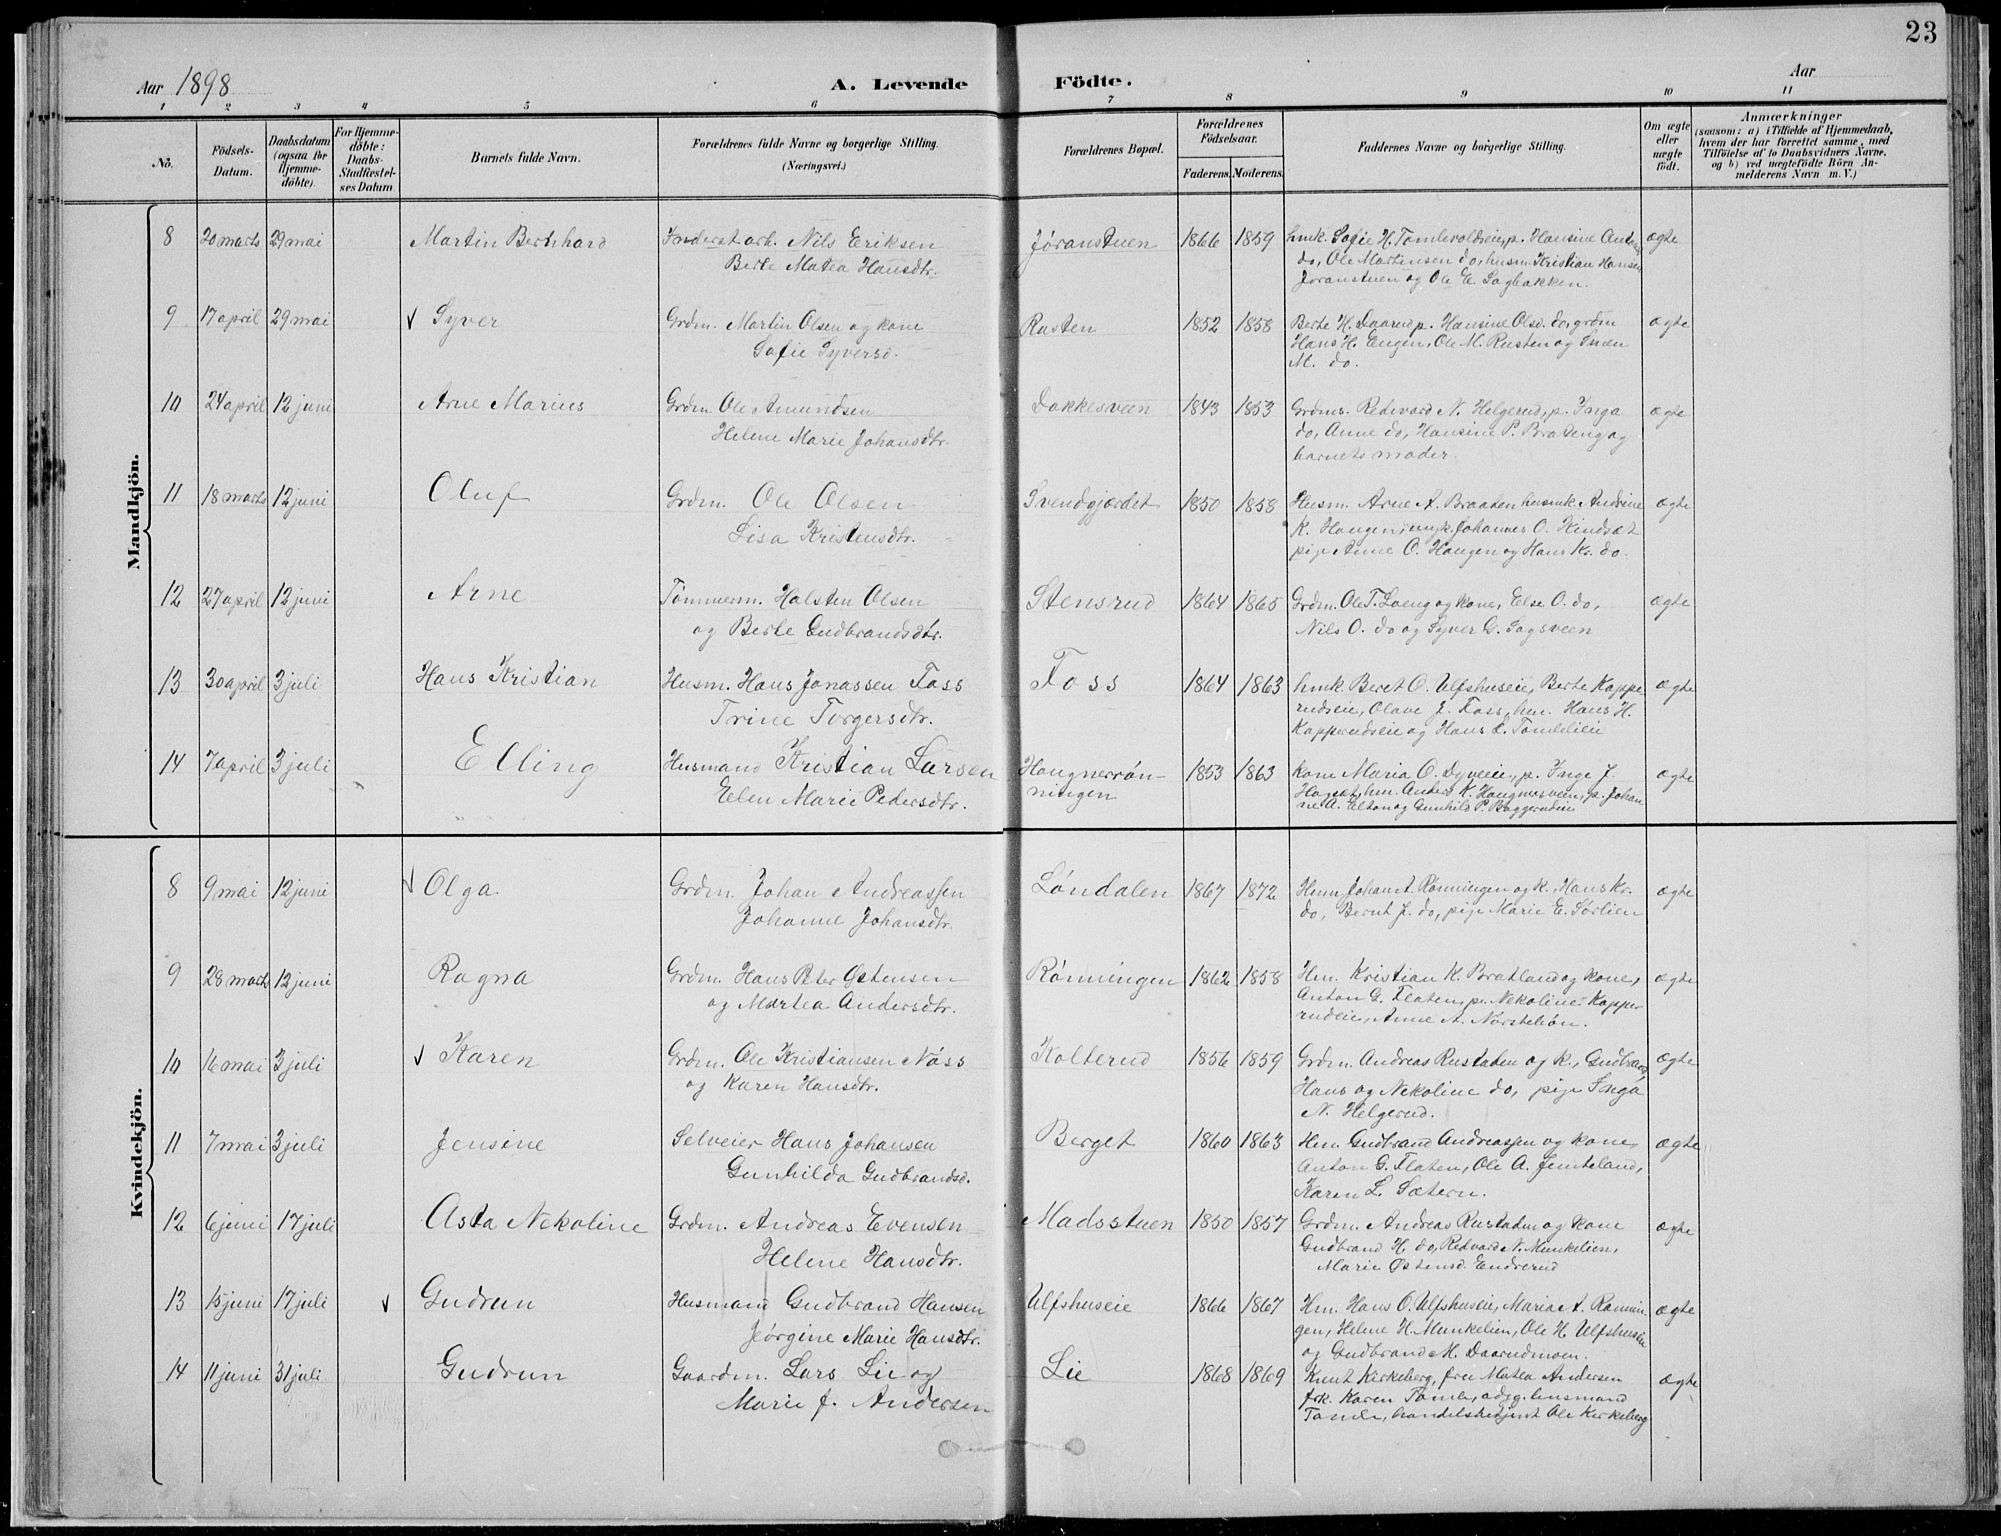 23
Aar 1898
A. Levende Födte.
Aar
1 2 3 4 5 6 7 8 9 10 11
No.
Födsels-Datum.
Daabsdatum (ogsaa for Hjemme-döbte).
For Hjemme-döbte: Daabs-Stadfæstel-ses Datum
Barnets fulde Navn.
Forældrenes fulde Navne og borgerlige Stilling.
(Næringsvei.)
Forældrenes Bopæl.
Forældrenes Födselsaar.
Faderens. Moderens.
Faddernes Navne og borgerlige Stilling.
Om ægte eller uægte födt.
Anmærkninger
(saasom: a) i Tilfælde af Hjemmedaab,
hvem der har forrettet samme, med
Tilföielse af to Daabsvidners Navne,
og b) ved uægtefödte Börn An-
melderens Navn m. V.)
Mandkjön.
8 20 marts 29 mai Martin Bernhard Inderst arb. Nils Eriksen Jøranstuen 1866 1859 hmk. Sofie H. Tomlevoldseie, p. Hansine ægte
Berte Matea Hansdtr. do, Ole Martensen do, husm. Kristian Hansen
Jøranstuen og Ole E. Sagbakken.
9 17 april 29 mai Syver Grdm. Martin Olsen og kone Rusten 1852 1858 Berte H. Daarud p. Hansine Olsd. do, grdm ægte
Sofie Syversd. Hans H. Engen, Ole M. Rusten og
M. do.
10 24 april 12 juni Arne Marius Grdm. Ole Amundsen Dokkesveen 1843 1853 Grdms. Redvard N. Helgerud, p. Inga ægte
Helene Marie Johansdtr. do, Anne do, Hansine P. Brateng og
barnets moder.
11 18 marts 12 juni Oluf Grdm. Ole Olsen Svendgjerdet 1850 1858 Husm. Arne A. Braaten husmk. Andrine ægte
Lisa Kristensdtr. K. Haugen, ungk. Johannes O. Hindsæt
pige Anne O. Haugen og Hans Kr. do.
12 27 april 12 juni Arne Tømmerm. Halsten Olsen Stensrud 1864 1865 Grdm. Ole T. Loeng og kone, Else O. do, ægte
og Berte Gudbrandsdtr. Nils O. do og Syver G. Sagsveen
13 30 april 3 juli Hans Kristian Husm. Hans Jonassen Foss Foss 1864 1863 hmk. Beret O. Ulfshuseie, Berte Kappe- ægte
Trine Torgersdtr. rudseie, Olave J. Foss, hm. Hans H.
Kapperudseie og Hans L. Tomlelieie
14 7 april 3 juli Elling Husmand Kristian Larsen Haugnerrøn- 1853 1863 kone Maria O. Dyveeie, p. Inge J. ægte
Elen Marie Pedersdtr. ningen Hagsæt, hm. Anders K. Haugnersveen, p. Johan
ne A. Elton og Gunhild P. Baggerudeie
Kvindekjön.
8 9 mai 12 juni Olga. Grdm. Johan Andreassen Løndalen 1867 1872 Husm Johan A. Rønningen og k., Hans Kr. ægte
Johanne Johansdtr. do, Bernt J. do, pige Marie E. Sørlien
9 28 marts 12 juni Ragna Grdm. Hans Peter Østensen Rønningen 1862 1858 Hm. Kristian K. Bratland og kone, ægte
og Martea Andersdtr. Anton G. Flaten, p. Nekoline Kappe-
rudeie, Anne A. Norsteliøn.
10 16 mai 3 juli Karen Grdm. Ole Kristiansen Næss Kolterud 1856 1859 Grdm. Andreas Rustaden og k., Gudbrand ægte
og Karen Hansdtr. Hans og Nekoline do, pige Inga
N. Helgerud.
11 7 mai 3 juli Jensine Selveier Hans Johansen Berget 1860 1863 Hm. Gudbrand Andreassen og kone, ægte
Gunhilda Gudbrandsd. Anton G. Flaten, Ole A. Jemteland,
Karen L. Sætern.
12 6 juni 17 juli Asta Nekoline Grdm. Andreas Evensen Madsstuen 1850 1857 Grdm. Andreas Rustaden og kone ægte
Helene Hansdtr. Gudbrand H. do, Redvard N. Munkelien,
Marie Østensd. Endrerud
13 15 juni 17 juli Gudrun Husmand Gudbrand Hansen Ulfshuseie 1866 1867 Hm. Hans O. Ulfshuseie, Maria A. Rønnin- ægte
Jørgine Marie Hansdtr. gen, Helene H. Munkelien, Ole H. Ulfshuseie
og Gudbrand M. Daarudmoen.
14 11 juni 31 juli Gudrun Gaardm. Lars Lie og Lie 1868 1869 Knut Kirkeberg, fru Matea Andersen ægte
Marie f. Andersen frk. Karen Tomle, adjg. lensmand
Tomle, handelsbetjent Ole Kirkeberg